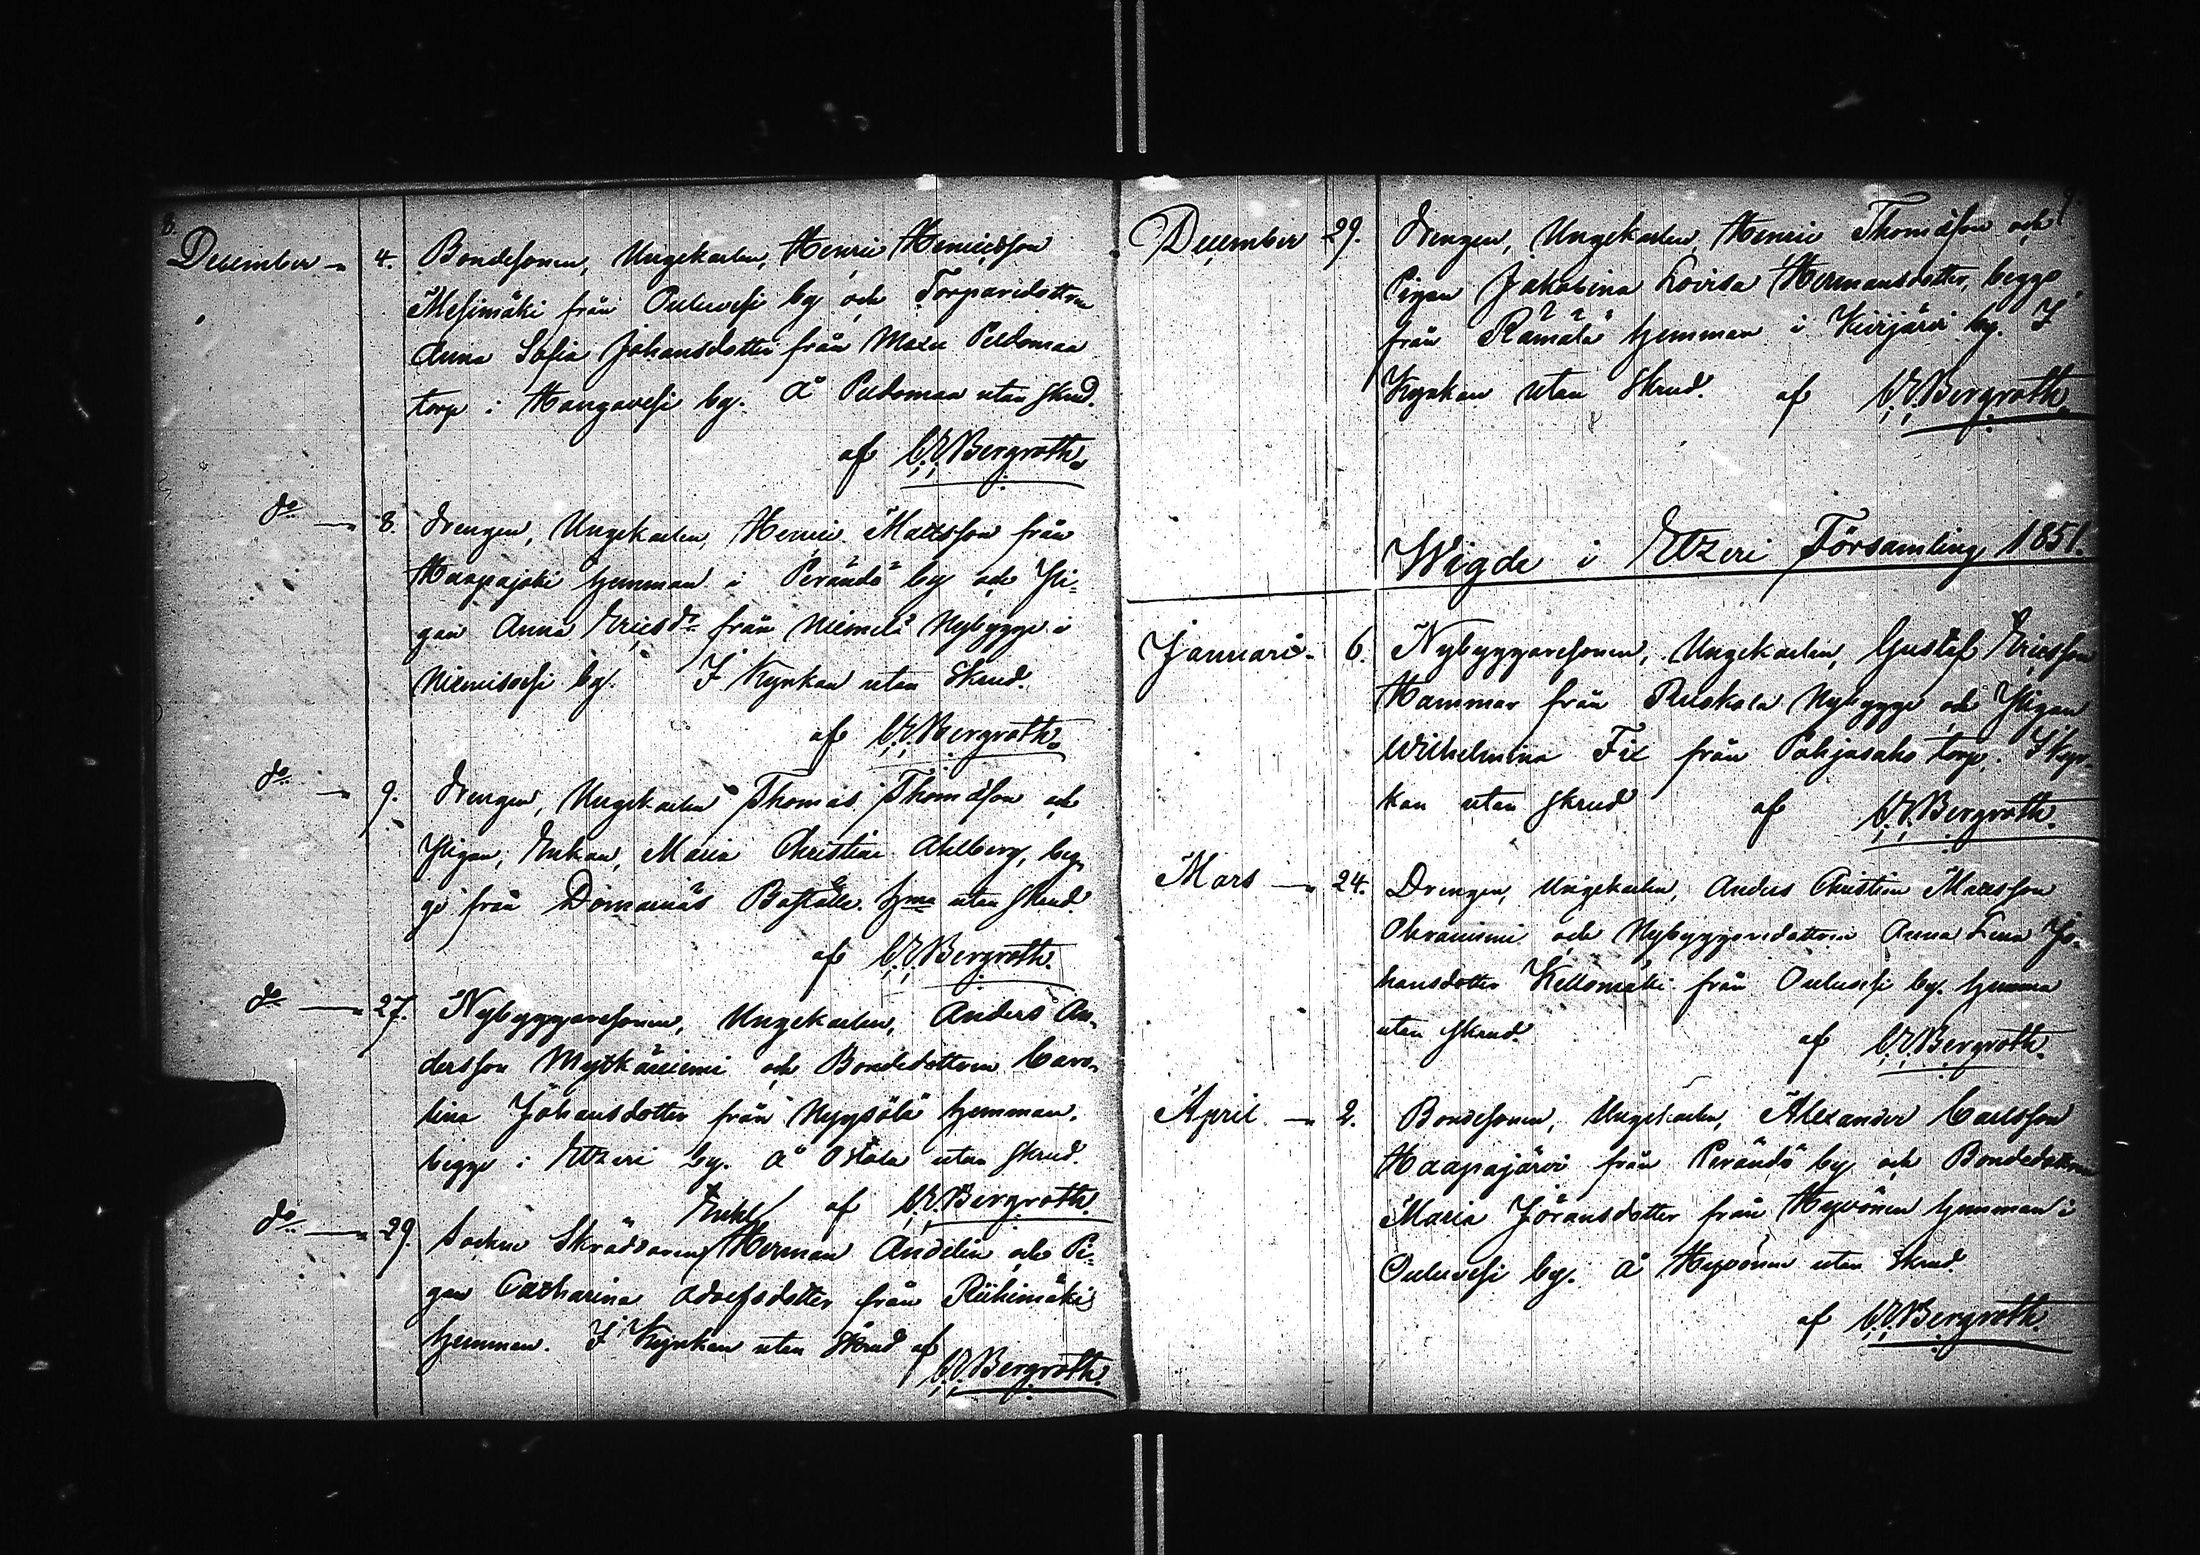 8.
December 4. Bondesonen, Ungekarlen, Henric Henricsson
Mesimäki från Ouluvesi by och Torparedottren
Anna Sofia Johansdotter från Peldomaa
torp i Hangavesi by. Å Peldomaa utan skrud.
af C.E. Bergroth.
do 8. Drengen, Ungekarlen, Henric Mattsson från
Haapajoki hemman i Perändö by och Pi-
gan Anna Ericsdr från Niemelä Nybygge i
Niemisvesi by. I Kyrkan utan skrud.
af C.E. Bergroth.
do 9. Drengen, Ungekarlen Thomas Thomasson och
Pigan, Enkan, Maria Christina Ahlberg, beg-
ge från Domarnäs Boställe. Hma utan skrud.
af C.E. Bergroth.
do 27. Nybyggaresonen, Ungekarlen, Anders An-
dersson Mytkäniemi och Bondedottren Caro-
lina Johansdotter från Nyysölä hemman,
begge i Etzeri by. Å Ostola utan skrud.
af C.E. Bergroth.
do 29. Sockne Skräddaren, Enkl. Herman Andelin och Pi-
gan Catharina Adolfsdotter från Riihimäki
hemman. I Kyrkan utan skrud af
C.E. Bergroth.
9.
December 29. Drengen, Ungekarlen, Henric Thomasson och
Pigan Jakobina Lovisa Hermansdotter, begge
från Rämälä hemman i Kivijärvi by. I
Kyrkan utan skrud. af C.E. Bergroth.
Wigde i Etzeri Församling 1851.
Januari 6. Nybyggaresonen, Ungekarlen, Gustaf Ericsson
Hammar från Ruskala Nybygge och Pigan
Wilhelmina från Pohjasaho torp. I Kyr-
kan utan skrud af C.E. Bergroth.
Mars 24. Drengen, Ungekarlen, Anders Christian Mattsson
och Nybyggaredottren Anna Lena Jo-
hansdotter Kellomäki från Ouluvesi by. Hemma
utan skrud. af C.E. Bergroth.
April 2. Bondesonen, Ungekarlen, Alexander Carlsson
Haapajärvi från Perändö by och Bondedottren
Maria Jöransdotter från Hyvönen hemman i
Ouluvesi by. Å Hyvönen utan skrud.
af C.E. Bergroth.